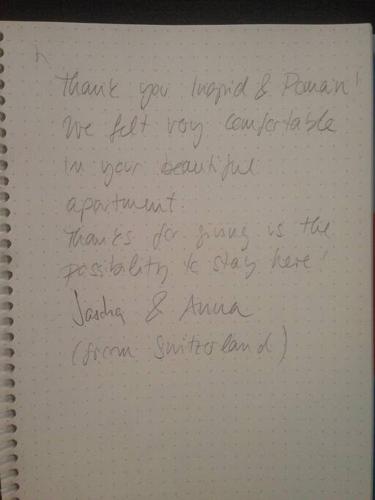 Thank you Ingrid & Romain!
We felt very comfortable
in your beautiful
apartment.
Thanks for giving us the
possibility to stay here!
Jascha & Anna
(from Switzerland)